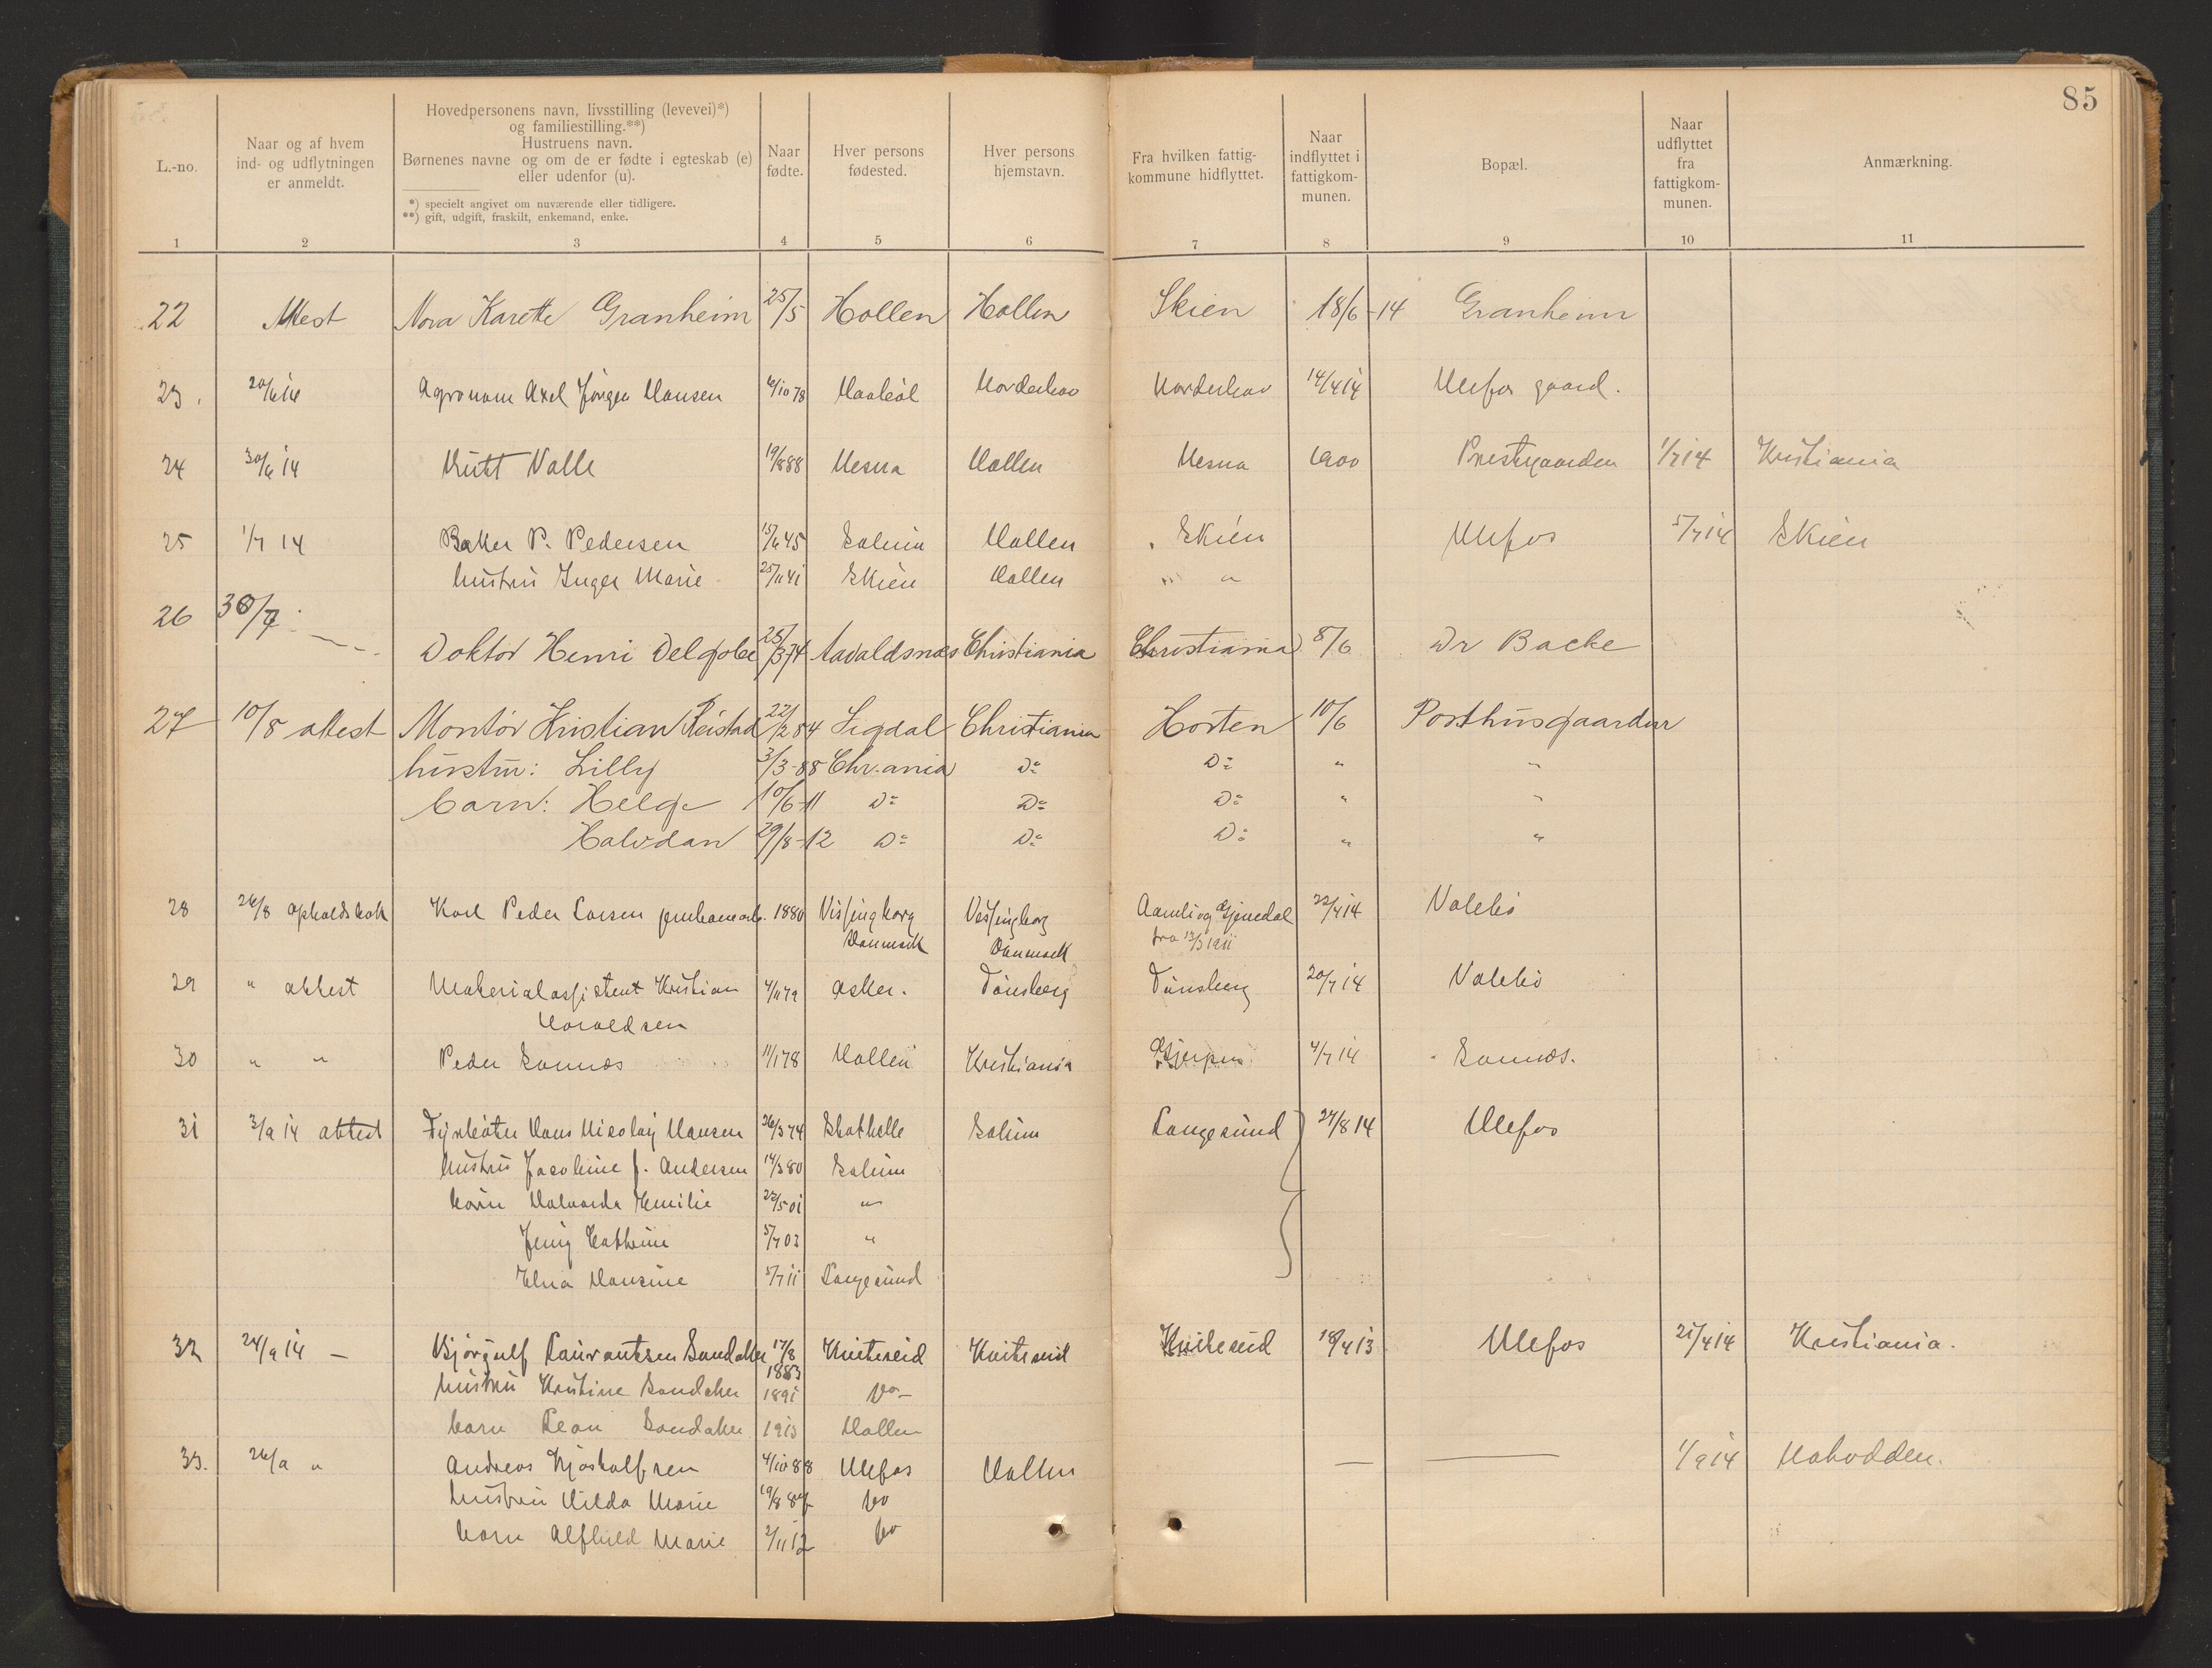 85
L.-no.
Naar og af hvem
ind- og udflytningen
er anmeldt.
Hovedpersonens navn, livsstilling (levevei)*)
og familiestilling.**)
Hustruens navn.
Børnenes navne og om de er fødte i egteskab (e)
eller udenfor (u).
*) specielt angivet om nuværende eller tidligere.
**) gift, udgift, fraskilt, enkemand, enke.
Naar
fødte.
Hver persons
fødested.
Hver persons
hjemstavn.
Fra hvilken fattig-
kommune hidflyttet.
Naar
indflyttet i
fattigkom-
munen.
Bopæl.
Naar
udflyttet
fra
fattigkom-
munen.
Anmærkning.
1 2 3 4 5 6 7 8 9 10 11
22 Attest Nora Karette Granheim 25/5 Hollen Hollen Skien 18/6-14 Granheim
23. 20/6 14 Agronom Axel Jörgen Hansen 6/10 78 Norderhov Norderhov 14/4 14 Ulefos gaard.
24 30/6 14 Valle 19/8 88 Hollen 1900 Prestegaarden 1/7 14 Kristiania
25 1/7 14 Baker P. Pedersen 15/6 45 Solum Hollen Skien Ulefos 5/7 14 Skien
hustru Inger Marie 25/11 41 Skien Hollen " "
26 30/7 Doktor Henri Delgobe 25/3 74 Avaldsnæs Christiania Christiania 8/6 Dr Backe
27 10/8 attest Montör Kristian Reistad 22/2 84 Sigdal Christiania Horten 10/6 Posthusgaarden
hustru: Lilly 3/3-88 Chr.ania Do Do " "
barn: Helge 10/6-11 Do Do Do " "
Halvdan 29/8-12 Do Do Do " "
28 26/8 opholdsbok Karl Peder Larsen jernbanearb. 1880 Vissingborg Vissingborg Aamli og Gjevedal 22/4 14 Valebö
Danmark Danmark fra 13/3 1911
29 " attest Materialassistent Kristian 4/11 79 Asker. Tönsberg Tönsberg 20/7 14 Valebö
Haraldsen
30 " " Peder Sannæs 11/1 78 Hollen Kristiania Gjerpen 4/7 14 Sannæs.
31 3/9 14 attest Fyrböter Hans Nicolay Hansen 26/3 74 Stathelle Solum Langesund 27/8 14 Ulefos
hustru Jacobine f. Andersen 14/3 80 Solum
barn Halvarda Emilie 22/5 01 "
Jenny Cathrine 5/7 03 "
Elna Hansine 5/7 11 Langesund
32 24/9 14 — Bjørgulf Laurantsen Sundaker 17/8 Kviteseid Kviteseid Kviteseid 18/4 13 Ulefos 21/4 14 Kristiania.
1883
hustru Kristine Sundaker 1891 Do—
barn Leon Sundaker 1913 Hollen
33. 26/9 " Andreas 4/10 88 Ulefos Hollen — — 1/9 14 Notodden.
hustru Hilda Marie 19/8 Do
barn Alfhild Marie 2/11 12 Do